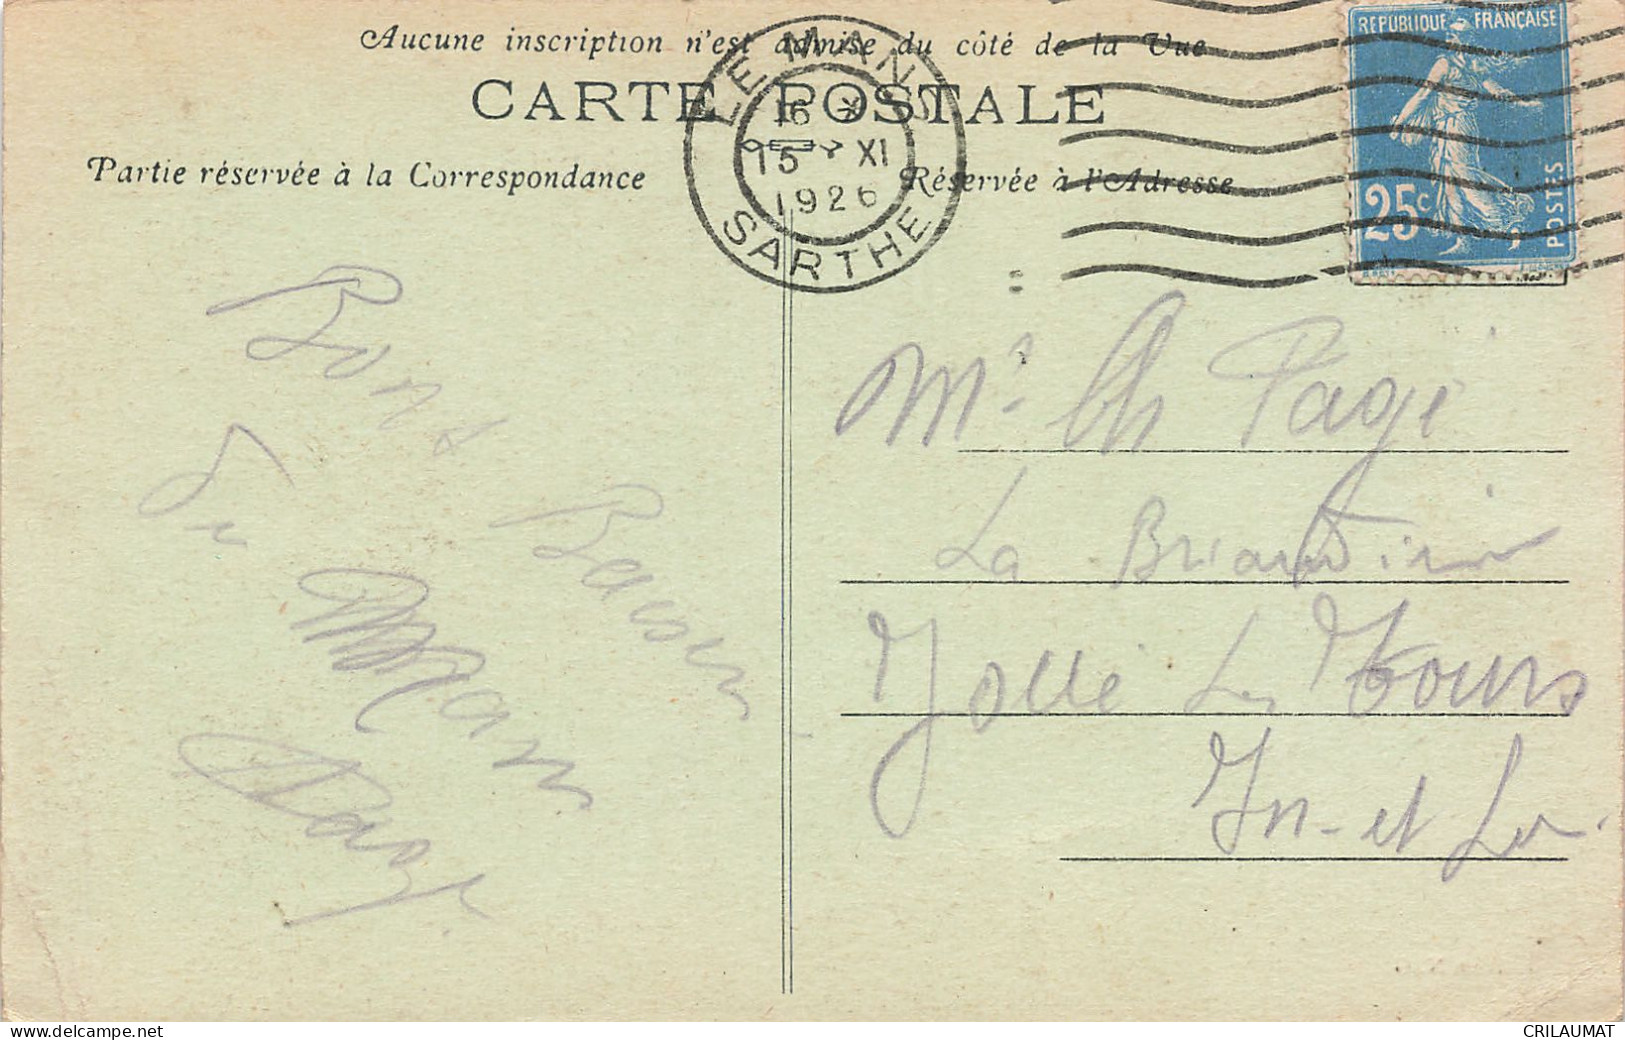 Aucune inscription n'est admise du côté de la Vue
CARTE POSTALE
Partie réservée à la Correspondance
Réservée à l'Adresse
LE MANS
16 X
15 XI
1926
SARTHE
REPUBLIQUE FRANÇAISE
25c
POSTES
Bons
Baisers
du
Mans
Pagé
Mr Ch Pagé
La Briandière
Joué Les Tours
In-et Loi
CRILAUMAT